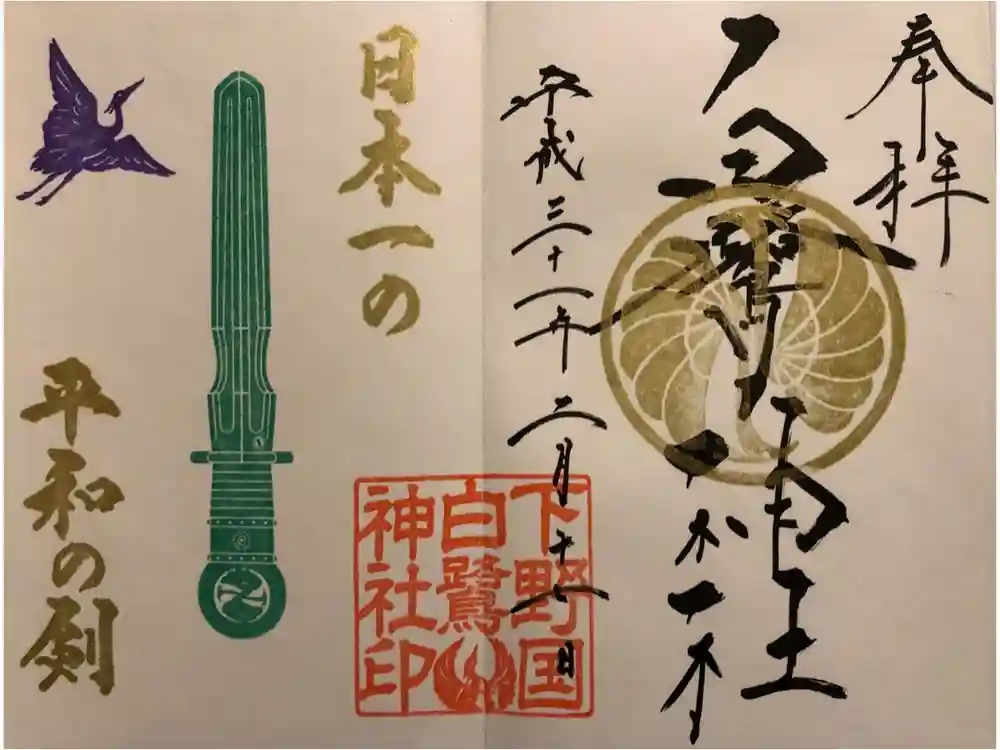 奉拝
白鷺神社
平成三十一年二月十七日
下野国
白鷺
神社印
日本一の
平和の剣